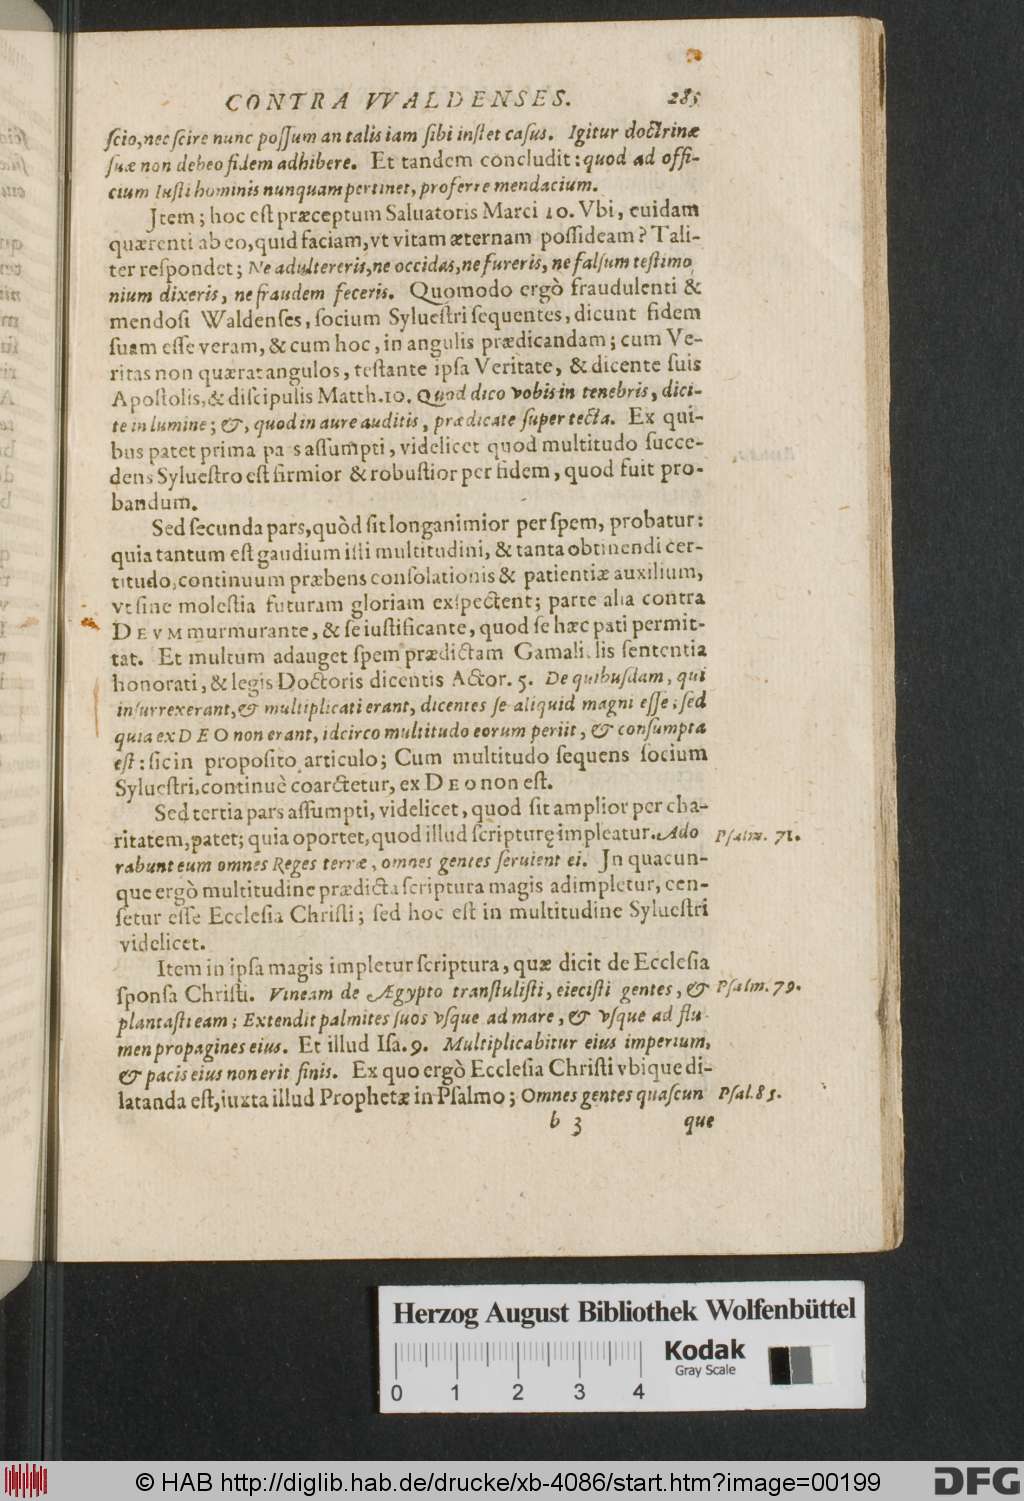 CONTRA VVALDENSES. 285
ſcio, nec ſcire nunc poſſum an talis iam ſibi inſtet caſus. Igitur doctrinæ
ſuæ non debeo fidem adhibere. Et tandem concludit: quod ad offi-
cium Iuſti hominis nunquam pertinet, proferre mendacium.
Item; hoc eſt præceptum Saluatoris Marci 10. Vbi, cuidam
quærenti ab eo, quid faciam, vt vitam æternam poſſideam? Tali-
ter reſpondet; Ne adultereris, ne occidas, ne fureris, ne falſum teſtimo
nium dixeris, ne fraudem feceris. Quomodo ergò fraudulenti &
mendoſi Waldenſes, ſocium Sylueſtri ſequentes, dicunt fidem
ſuam eſſe veram, & cum hoc, in angulis prædicandam; cum Ve-
ritas non quærat angulos, teſtante ipſa Veritate, & dicente ſuis
Apoſtolis, & diſcipulis Matth. 10. Quod dico vobis in tenebris, dici-
te in lumine; &, quod in aure auditis, prædicate ſuper tecta. Ex qui-
bus patet prima pa s aſſumpti, videlicet quod multitudo ſucce-
dens Sylueſtro eſt firmior & robuſtior per fidem, quod fuit pro-
bandum.
Sed ſecunda pars, quòd ſit longanimior per ſpem, probatur:
quia tantum eſt gaudium illi multitudini, & tanta obtinendi cer-
titudo, continuum præbens conſolationis & patientiæ auxilium,
vt ſine moleſtia futuram gloriam exſpectent; parte alia contra
DEVM murmurante, & ſe iuſtificante, quod ſe hæc pati permit-
tat. Et multum adauget ſpem prædictam Gamalielis ſententia
honorati, & legis Doctoris dicentis Actor. 5. De quibuſdam, qui
inſurrexerant, & multiplicati erant, dicentes ſe aliquid magni eſſe; ſed
quia ex DEO non erant, idcirco multitudo eorum periit, & conſumpta
eſt: ſic in propoſito articulo; Cum multitudo ſequens ſocium
Sylueſtri, continuè coarctetur, ex DEO non eſt.
Sed tertia pars aſſumpti, videlicet, quod ſit amplior per cha-
ritatem, patet; quia oportet, quod illud ſcripturę impleatur. Ado Pſalm. 71.
rabunt eum omnes Reges terræ, omnes gentes ſeruient ei. In quacun-
que ergò multitudine prædicta ſcriptura magis adimpletur, cen-
ſetur eſſe Eccleſia Chriſti; ſed hoc eſt in multitudine Sylueſtri
videlicet.
Item in ipſa magis impletur ſcriptura, quæ dicit de Eccleſia
ſponſa Chriſti. Vineam de Ægypto tranſtuliſti, eieciſti gentes, & Pſalm. 79.
plantaſti eam; Extendit palmites ſuos vſque ad mare, & vſque ad flu-
men propagines eius. Et illud Iſa. 9. Multiplicabitur eius imperium,
& pacis eius non erit finis. Ex quo ergò Eccleſia Chriſti vbique di-
latanda eſt, iuxta illud Prophetæ in Pſalmo; Omnes gentes quaſcun Pſal. 85.
b 3 que
Herzog August Bibliothek Wolfenbüttel
Kodak
Gray Scale
0 1 2 3 4
© HAB http://diglib.hab.de/drucke/xb-4086/start.htm?image=00199
DFG